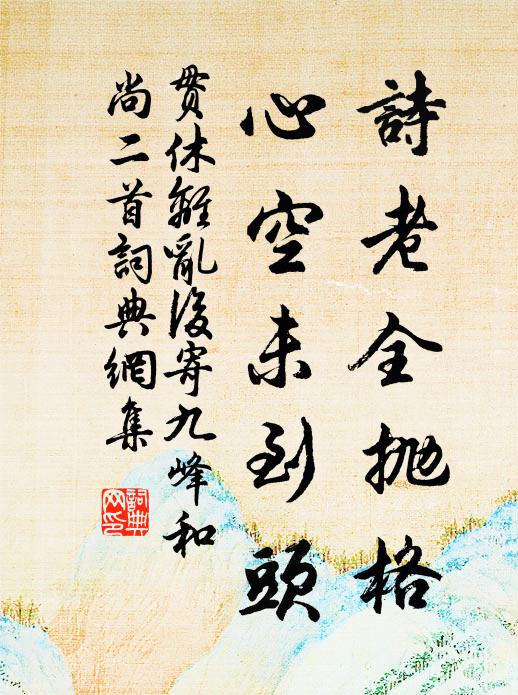 詩老全抛格
心空未到頭
貫休離亂後寄九峰和
尚二首詞典網集
詞典網印